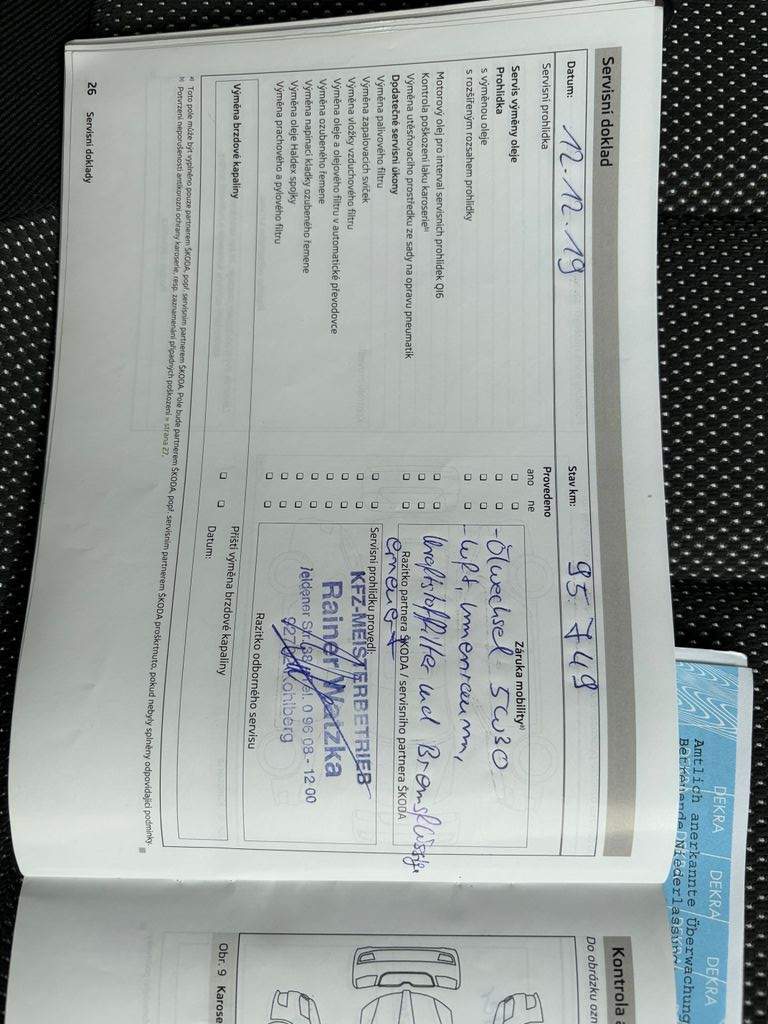 Servisní doklad
Datum: 12.12.19 Stav km: 95.749
Servisní prohlídka Provedeno
ano ne
Servis výměny oleje
Prohlídka
s výměnou oleje
s rozšířeným rozsahem prohlídky
Motorový olej pro interval servisních prohlídek QI6
Kontrola poškození laku karoserie b)
Výměna utěsňovacího prostředku ze sady na opravu pneumatik
Dodatečné servisní úkony
Výměna palivového filtru
Výměna zapalovacích svíček
Výměna vložky vzduchového filtru
Výměna oleje a olejového filtru v automatické převodovce
Výměna ozubeného řemene
Výměna napínací kladky ozubeného řemene
Výměna oleje Haldex spojky
Výměna prachového a pylového filtru
Záruka mobility a)
- Ölwechsel 5W30
- Luft, Innenraum,
Kraftstofffilter und Bremsflüssigk
erneuert
Razítko partnera ŠKODA / servisního partnera ŠKODA
Servisní prohlídku provedl:
KFZ-MEISTERBETRIEB
Rainer Watzka
Tel. 0 96 08 - 12 00
Kohlberg
Razítko odborného servisu
Výměna brzdové kapaliny
Příští výměna brzdové kapaliny
Datum:
a) Toto pole může být vyplněno pouze partnerem ŠKODA, popř. servisním partnerem ŠKODA. Pole bude partnerem ŠKODA, popř. servisním partnerem ŠKODA proškrtnuto, pokud nebyly splněny odpovídající podmínky.
b) Potvrzení neporušenosti antikorozní ochrany karoserie, resp. zaznamenání případných poškození » strana 27.
26 Servisní doklady
DEKRA DEKRA DEKRA
Amtlich anerkannte Überwachung
Betreuende Niederlassung
Kontrola
Do obrázku ozn
Obr. 9 Karose